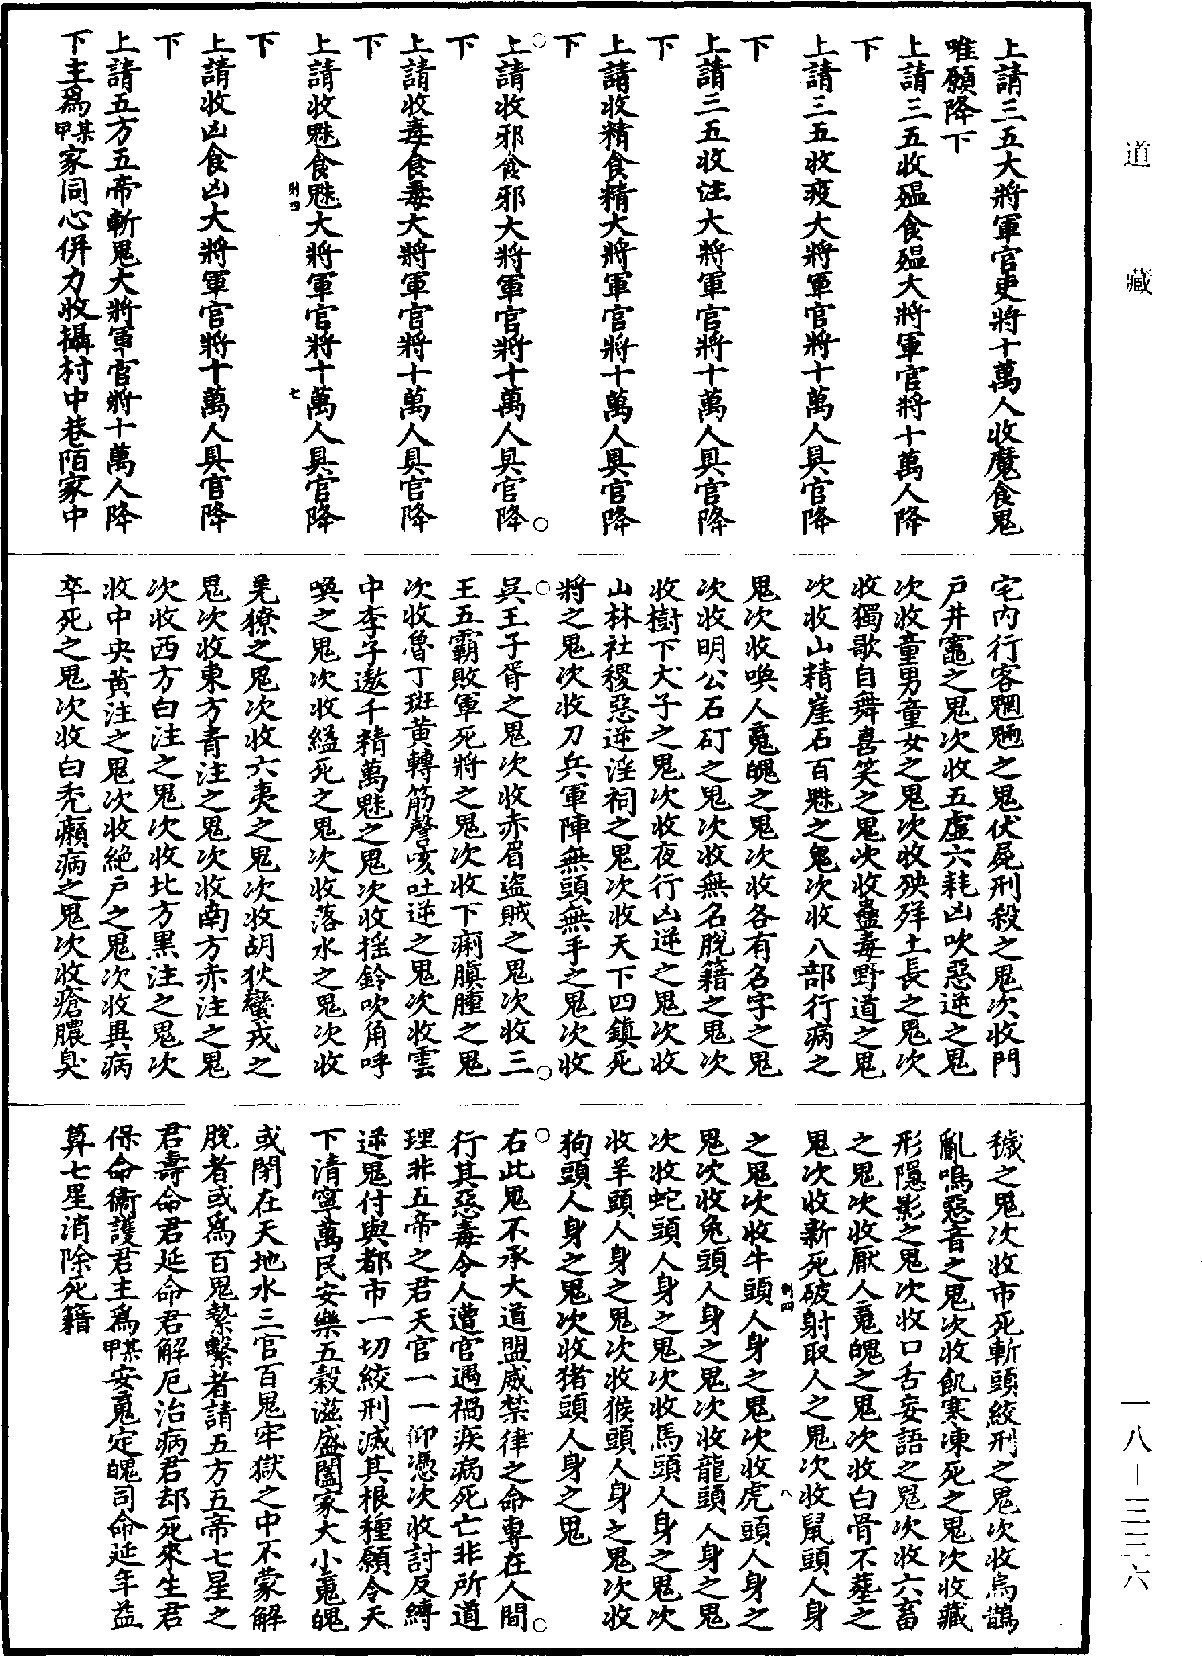 道藏
上請三五大將軍官吏將十萬人收魔食鬼
唯願降下
上請三五收瘟食瘟大將軍官將十萬人降
下
上請三五收疫大將軍官將十萬人具官降
下
上請三五收注大將軍官將十萬人具官降
下
上請收精食精大將軍官將十萬人具官降
下
上請收邪食邪大將軍官將十萬人具官降
下
上請收毒食毒大將軍官將十萬人具官降
下
上請收魅食魅大將軍官將十萬人具官降
下
上請收凶食凶大將軍官將十萬人具官降
下
上請五方五帝斬鬼大將軍官將十萬人降
下主爲某甲家同心併力收攝村中巷陌家中
宅内行客魍魎之鬼伏屍刑殺之鬼次收門
戸井竈之鬼次收五虛六耗凶吹惡逆之鬼
次收童男童女之鬼次收殃殍土長之鬼次
收獨歌自舞喜笑之鬼次收蠱毒野道之鬼
次收山精崖石百魅之鬼次收八部行病之
鬼次收喚人䰟魄之鬼次收各有名字之鬼
次收明公石矴之鬼次收無名脫籍之鬼次
收樹下犬子之鬼次收夜行凶逆之鬼次收
山林社稷惡逆淫祠之鬼次收天下四鎮死
將之鬼次收刀兵軍陣無頭無手之鬼次收
吳王子胥之鬼次收赤眉盜賊之鬼次收三
王五霸敗軍死將之鬼次收下痢臏腫之鬼
次收魯丁班黃轉筋謦咳吐逆之鬼次收雲
中李子遨千精萬魅之鬼次收揺鈴吹角呼
喚之鬼次收縊死之鬼次收落水之鬼次收
羌獠之鬼次收六夷之鬼次收胡狄蠻戎之
鬼次收東方青注之鬼次收南方赤注之鬼
次收西方白注之鬼次收北方黑注之鬼次
收中央黃注之鬼次收絕戸之鬼次收異病
卒死之鬼次收白禿癩病之鬼次收瘡膿臭
穢之鬼次收市死斬頭絞刑之鬼次收烏鵲
亂鳴惡音之鬼次收飢寒凍死之鬼次收藏
形隱影之鬼次收口舌妄語之鬼次收六畜
之鬼次收厭人䰟魄之鬼次收白骨不葬之
鬼次收新死破射取人之鬼次收鼠頭人身
之鬼次收牛頭人身之鬼次收虎頭人身之
鬼次收兔頭人身之鬼次收龍頭人身之鬼
次收蛇頭人身之鬼次收馬頭人身之鬼次
收羊頭人身之鬼次收猴頭人身之鬼次收
狗頭人身之鬼次收猪頭人身之鬼
右此鬼不承大道盟威禁律之命專在人間
行其惡毒令人遭官遇禍疾病死亡非所道
理非五帝之君天官一一仰憑次收討反縛
送鬼付與都市一切絞刑滅其根種願令天
下清寧萬民安樂五穀滋盛闔家大小䰟魄
或閉在天地水三官百鬼牢獄之中不蒙解
脫者或爲百鬼縶繫者請五方五帝七星之
君壽命君延命君解厄治病君却死來生君
保命衞護君主爲某甲安䰟定魄司命延年益
算七星消除死籍
一八—三三六